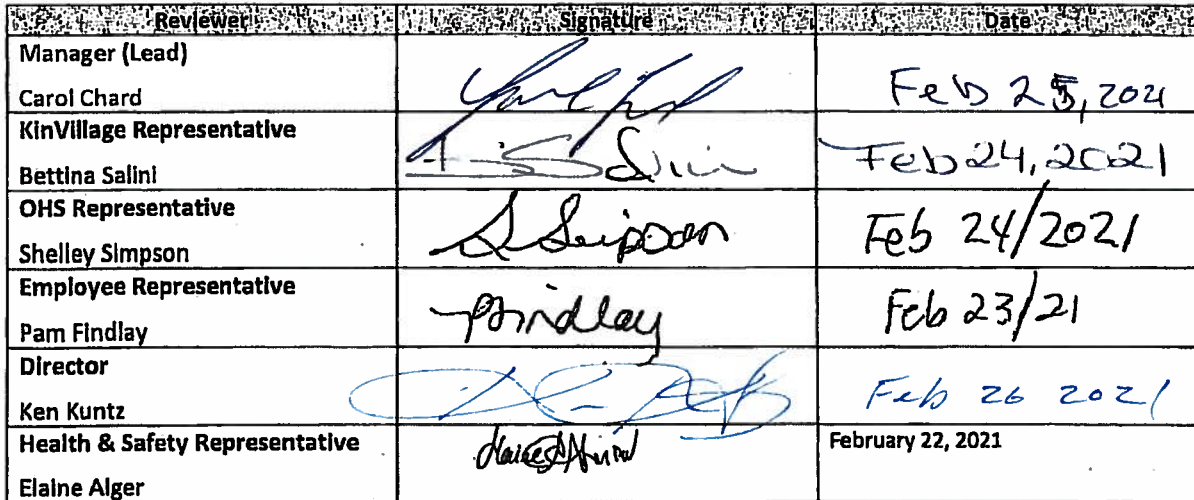 Reviewer Signature Date
Manager (Lead)
Carol Chard Feb 25, 2021
KinVillage Representative
Bettina Salini B Salini Feb 24, 2021
OHS Representative
Shelley Simpson S Simpson Feb 24/2021
Employee Representative
Pam Findlay PFindlay Feb 23/21
Director
Ken Kuntz Feb 26 2021
Health & Safety Representative February 22, 2021
Elaine Alger